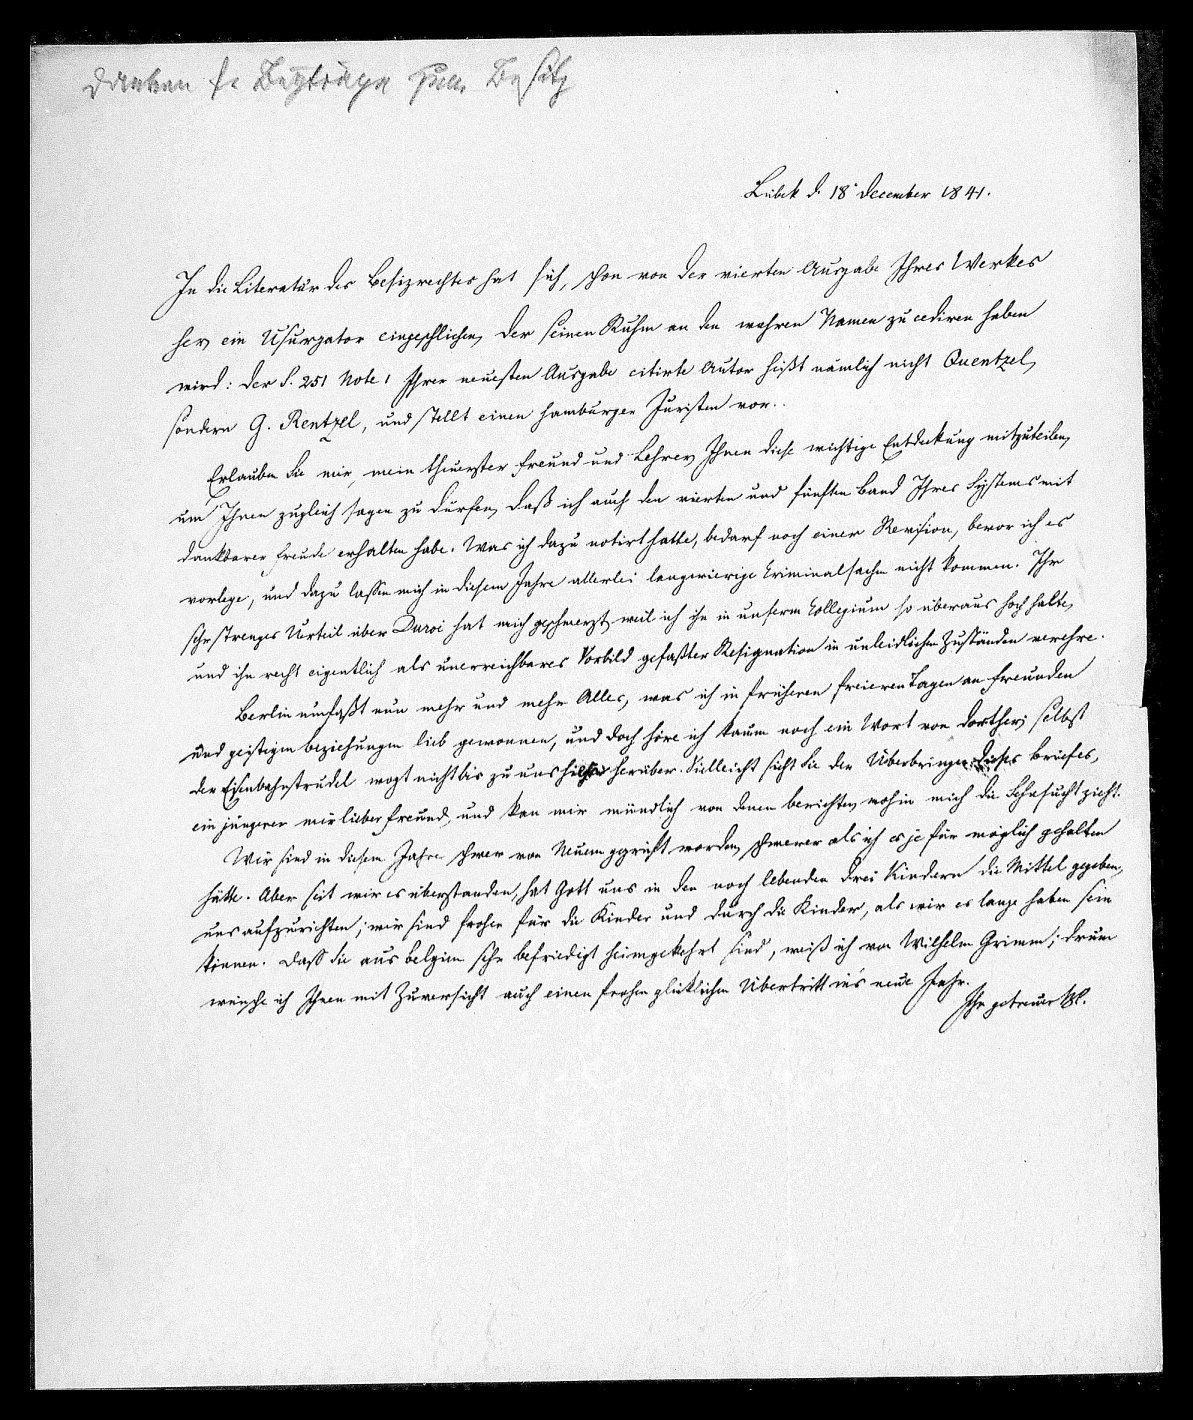 danken f. Beyträge zum Besitz
Lübek d. 18' December 1841.
In die Literatur des Besizrechtes hat sich, schon von der vierten Ausgabe Ihres Werkes
her, ein Usurpator eingeschlichen, der seinen Ruhm an den wahren Namen zu cediren haben
wird: der S. 251 Note 1 Ihrer neuesten Ausgabe citirte Autor heißt nämlich nicht Quentzel,
sondern G. Rentzel, und stellt einen hamburger Juristen vor.
Erlauben Sie mir, mein theuerster Freund und Lehrer, Ihnen diese wichtige Entdeckung mitzuteilen,
um Ihnen zugleich sagen zu dürfen, daß ich auch den vierten und fünften Band Ihres Systems mit
dankbarer Freude erhalten habe. Was ich dazu notirt hatte, bedarf noch einer Revision, bevor ich es
vorlege, und dazu lassen mich in diesem Jahre allerlei langwierige Criminalsachen nicht kommen. Ihr
sehr strenges Urteil über Duroi hat mich geschmerzt, weil ich ihn in unserm Collegium so überaus hoch halte,
und ihn recht eigentlich als unerreichbares Vorbild gefaßter Resignation in unleidlichen Zuständen verehre.
Berlin umfaßt nun mehr und mehr Alles, was ich in früheren freieren Tagen an Freunden
und geistigen Beziehungen lieb gewonnen, und doch höre ich kaum noch ein Wort von dorther; selbst
der Eisenbahnstrudel wogt nicht bis zu uns herüber. Vielleicht sieht Sie der Überbringer dieses Briefes,
ein jüngerer mir lieber Freund, und kan mir mündlich von denen berichten, wohin mich die Sehnsucht zieht.
Wir sind in diesem Jahre schwer von Neuem geprüft worden, schwerer als ich es je für möglich gehalten
hätte. Aber seit wir es überstanden, hat Gott uns in den noch lebenden drei Kindern die Mittel gegeben,
uns aufzurichten; wir sind froher für die Kinder und durch die Kinder, als wir es lange haben sein
können. Daß Sie aus Belgien sehr befriedigt heimgekehrt sind, weiß ich von Wilhelm Grimm; drum
wünsche ich Ihnen mit Zuversicht auch einen frohen glücklichen Übertritt in's neue Jahr.
Ihr getreuer Bl.